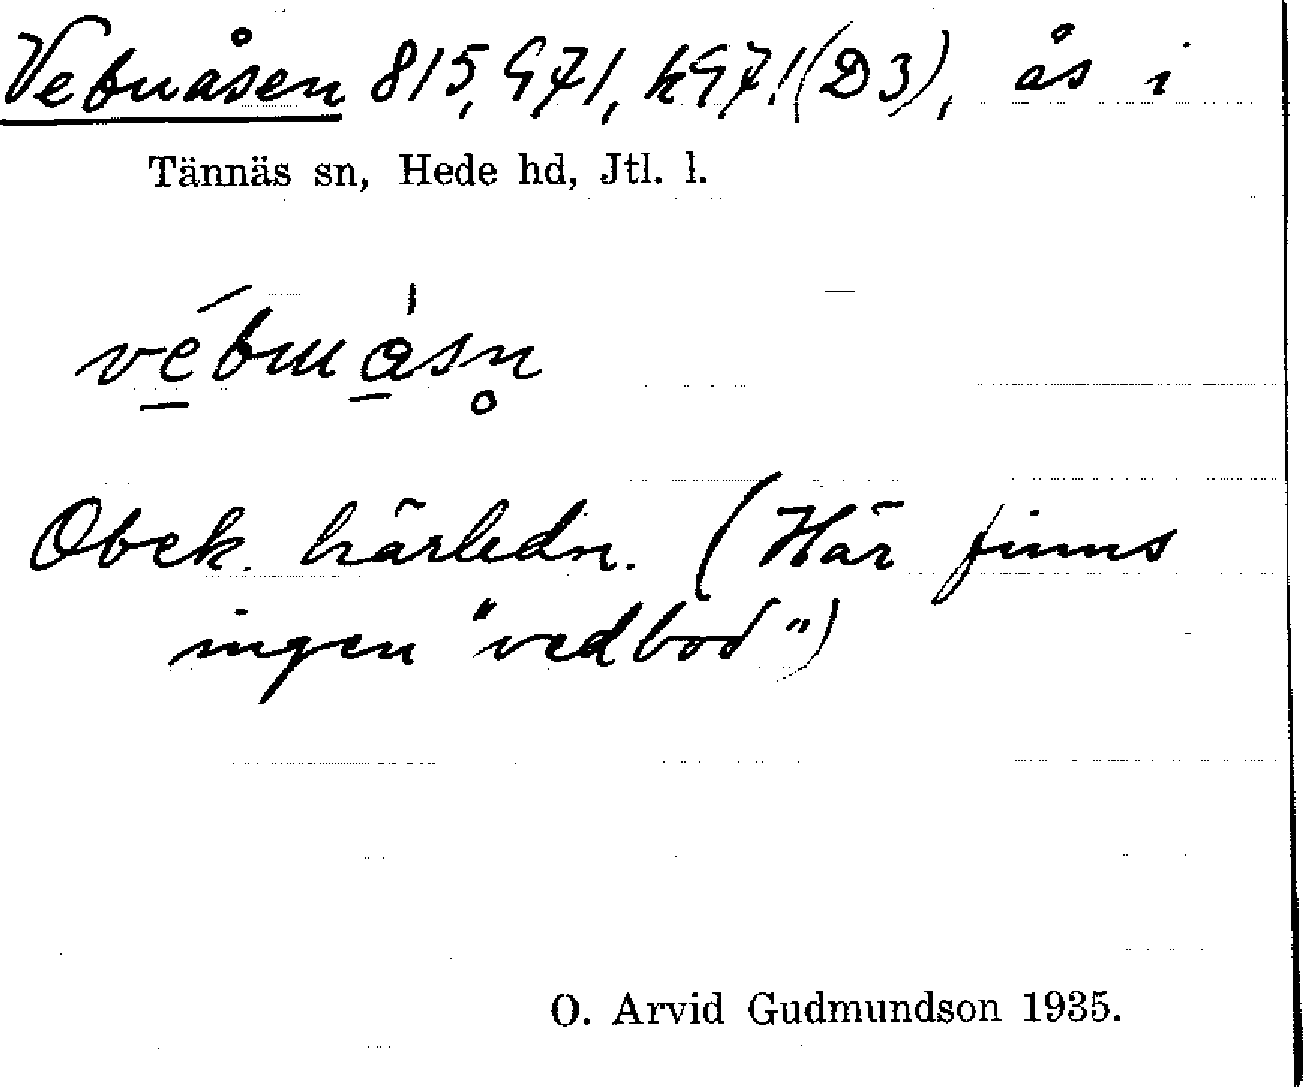 Vebuåsen 815, G71, kG71 (D3), ås i
Tännäs sn, Hede hd, Jtl. l.
Obek. härledn. (Här finns
ingen "vedbod")
O. Arvid Gudmundson 1935.